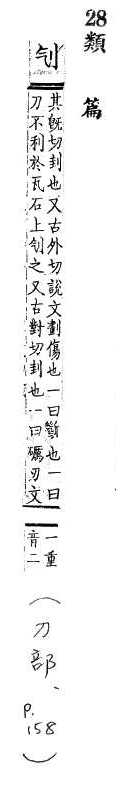 28 類篇
刉
其旣切刲也又古外切說文劃傷也一曰斷也一曰
刀不利於瓦石上刉之又古對切刲也一曰礪刃文
一重
音二
(刀部、p.158)